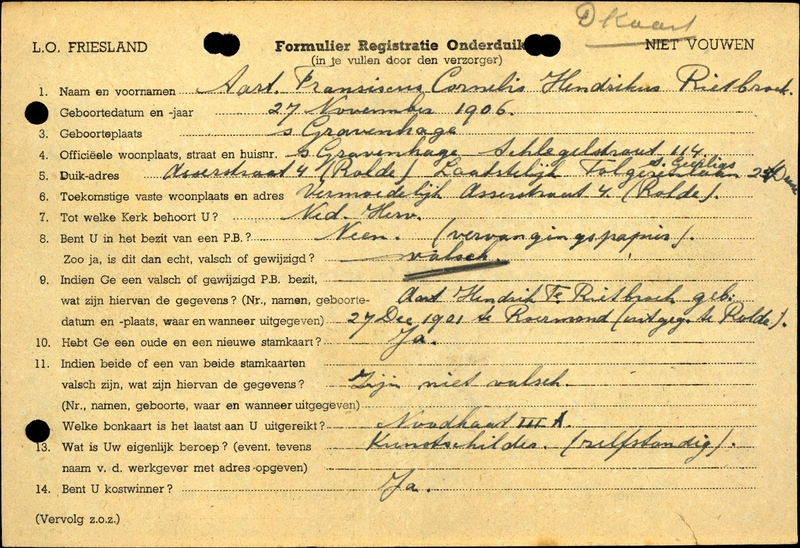 D Kaart
L.O. FRIESLAND Formulier Registratie Onderduik NIET VOUWEN
(in te vullen door den verzorger)
1. Naam en voornamen Aart. Fransiscus Cornelis Hendrikus Rietbroek.
Geboortedatum en -jaar 27 November 1906.
3. Geboorteplaats s Gravenhage
4. Officiëele woonplaats, straat en huisnr. s Gravenhage Schlegelstraat 114
5. Duik-adres Asserstraat 4 (Rolde) Laatstelijk
6. Toekomstige vaste woonplaats en adres Vermoedelijk Asserstraat 4. (Rolde).
7. Tot welke Kerk behoort U? Ned. Herv.
8. Bent U in het bezit van een P.B.? Neen. (vervangingspapier).
Zoo ja, is dit dan echt, valsch of gewijzigd? valsch.
9. Indien Ge een valsch of gewijzigd P.B. bezit,
wat zijn hiervan de gegevens? (Nr., namen, geboorte- Aart Hendrik Te Rietbroek geb.
datum en -plaats, waar en wanneer uitgegeven) 27 Dec 1901 te Roermond (uitgeg. te Rolde).
10. Hebt Ge een oude en een nieuwe stamkaart? Ja.
11. Indien beide of een van beide stamkaarten
valsch zijn, wat zijn hiervan de gegevens? Zijn niet valsch.
(Nr., namen, geboorte, waar en wanneer uitgegeven)
Welke bonkaart is het laatst aan U uitgereikt? Noodkaart III A
13. Wat is Uw eigenlijk beroep? (event. tevens Kunstschilder. (zelfstandig).
naam v. d. werkgever met adres opgeven)
14. Bent U kostwinner? Ja.
(Vervolg z.o.z.)